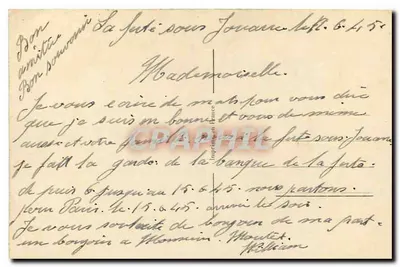 Bon
amitiée
Bon souvenir
La ferté sous Jouarre le 6.45
Mademoiselle.
Je vous écire de mots pour vous dire
que je suis en bonne et vous de même
aussi et votre famille a ferté sous Jouarre
je fait la garde de la banque de la ferté
de puis 6 jusqu'au 15.6.45. nous partons.
pour Paris. le 15.6.45. le soir.
Je vous de bonjour de ma part
un bonjour a Monsieur.
William
CARTAPHILE